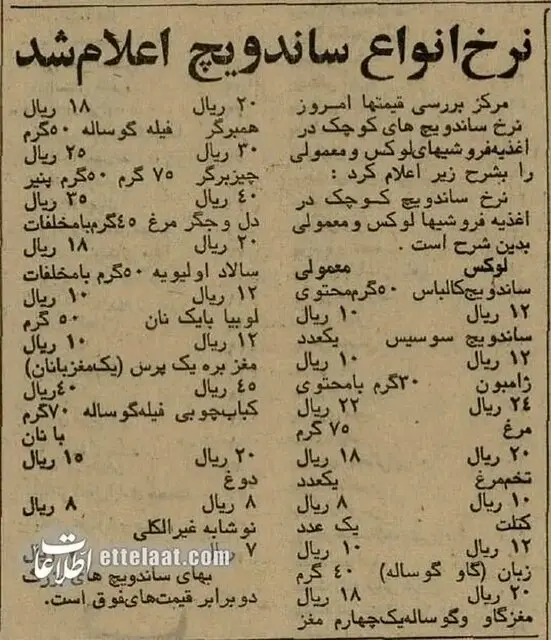 نرخ انواع ساندویچ اعلام شد
مرکز بررسی قیمتها امروز
نرخ ساندویچ های کوچک در
اغذیه فروشیهای لوکس و معمولی
را بشرح زیر اعلام کرد :
نرخ ساندویچ کوچک در
اغذیه فروشیها لوکس و معمولی
بدین شرح است .
لوکس معمولی
ساندویچ کالباس ۵۰ گرم محتوی
۱۲ ریال ۱۰ ریال
ساندویچ سوسیس یکعدد
۱۲ ریال ۱۰ ریال
ژامبون ۳۰ گرم بامحتوی
۲۴ ریال ۲۲ ریال
مرغ ۷۵ گرم
۲۰ ریال ۱۸ ریال
تخم مرغ یکعدد
۱۰ ریال ۸ ریال
کتلت یک عدد
۱۲ ریال ۱۰ ریال
زبان (گاو گوساله) ۴۰ گرم
۲۰ ریال ۱۸ ریال
مغزگاو وگوساله یک چهارم مغز
۲۰ ریال ۱۸ ریال
همبرگر فیله گوساله ۵۰ گرم
۳۰ ریال ۲۵ ریال
چیزبرگر ۷۵ گرم ۵۰ گرم پنیر
۴۰ ریال ۳۵ ریال
دل و جگر مرغ ۴۵ گرم بامخلفات
۲۰ ریال ۱۸ ریال
سالاد اولیویه ۵۰ گرم بامخلفات
۱۲ ریال ۱۰ ریال
لوبیا بایک نان ۵۰ گرم
۱۲ ریال ۱۰ ریال
مغز بره یک پرس (یک مغزبانان)
۴۵ ریال ۴۰ ریال
کباب چوبی فیله گوساله ۷۰ گرم
با نان
۲۰ ریال ۱۵ ریال
دوغ
۸ ریال ۸ ریال
نوشابه غیرالکلی
۷ ریال
بهای ساندویچ های
دو برابر قیمت‌های فوق است.
اطلاعات ettelaat.com